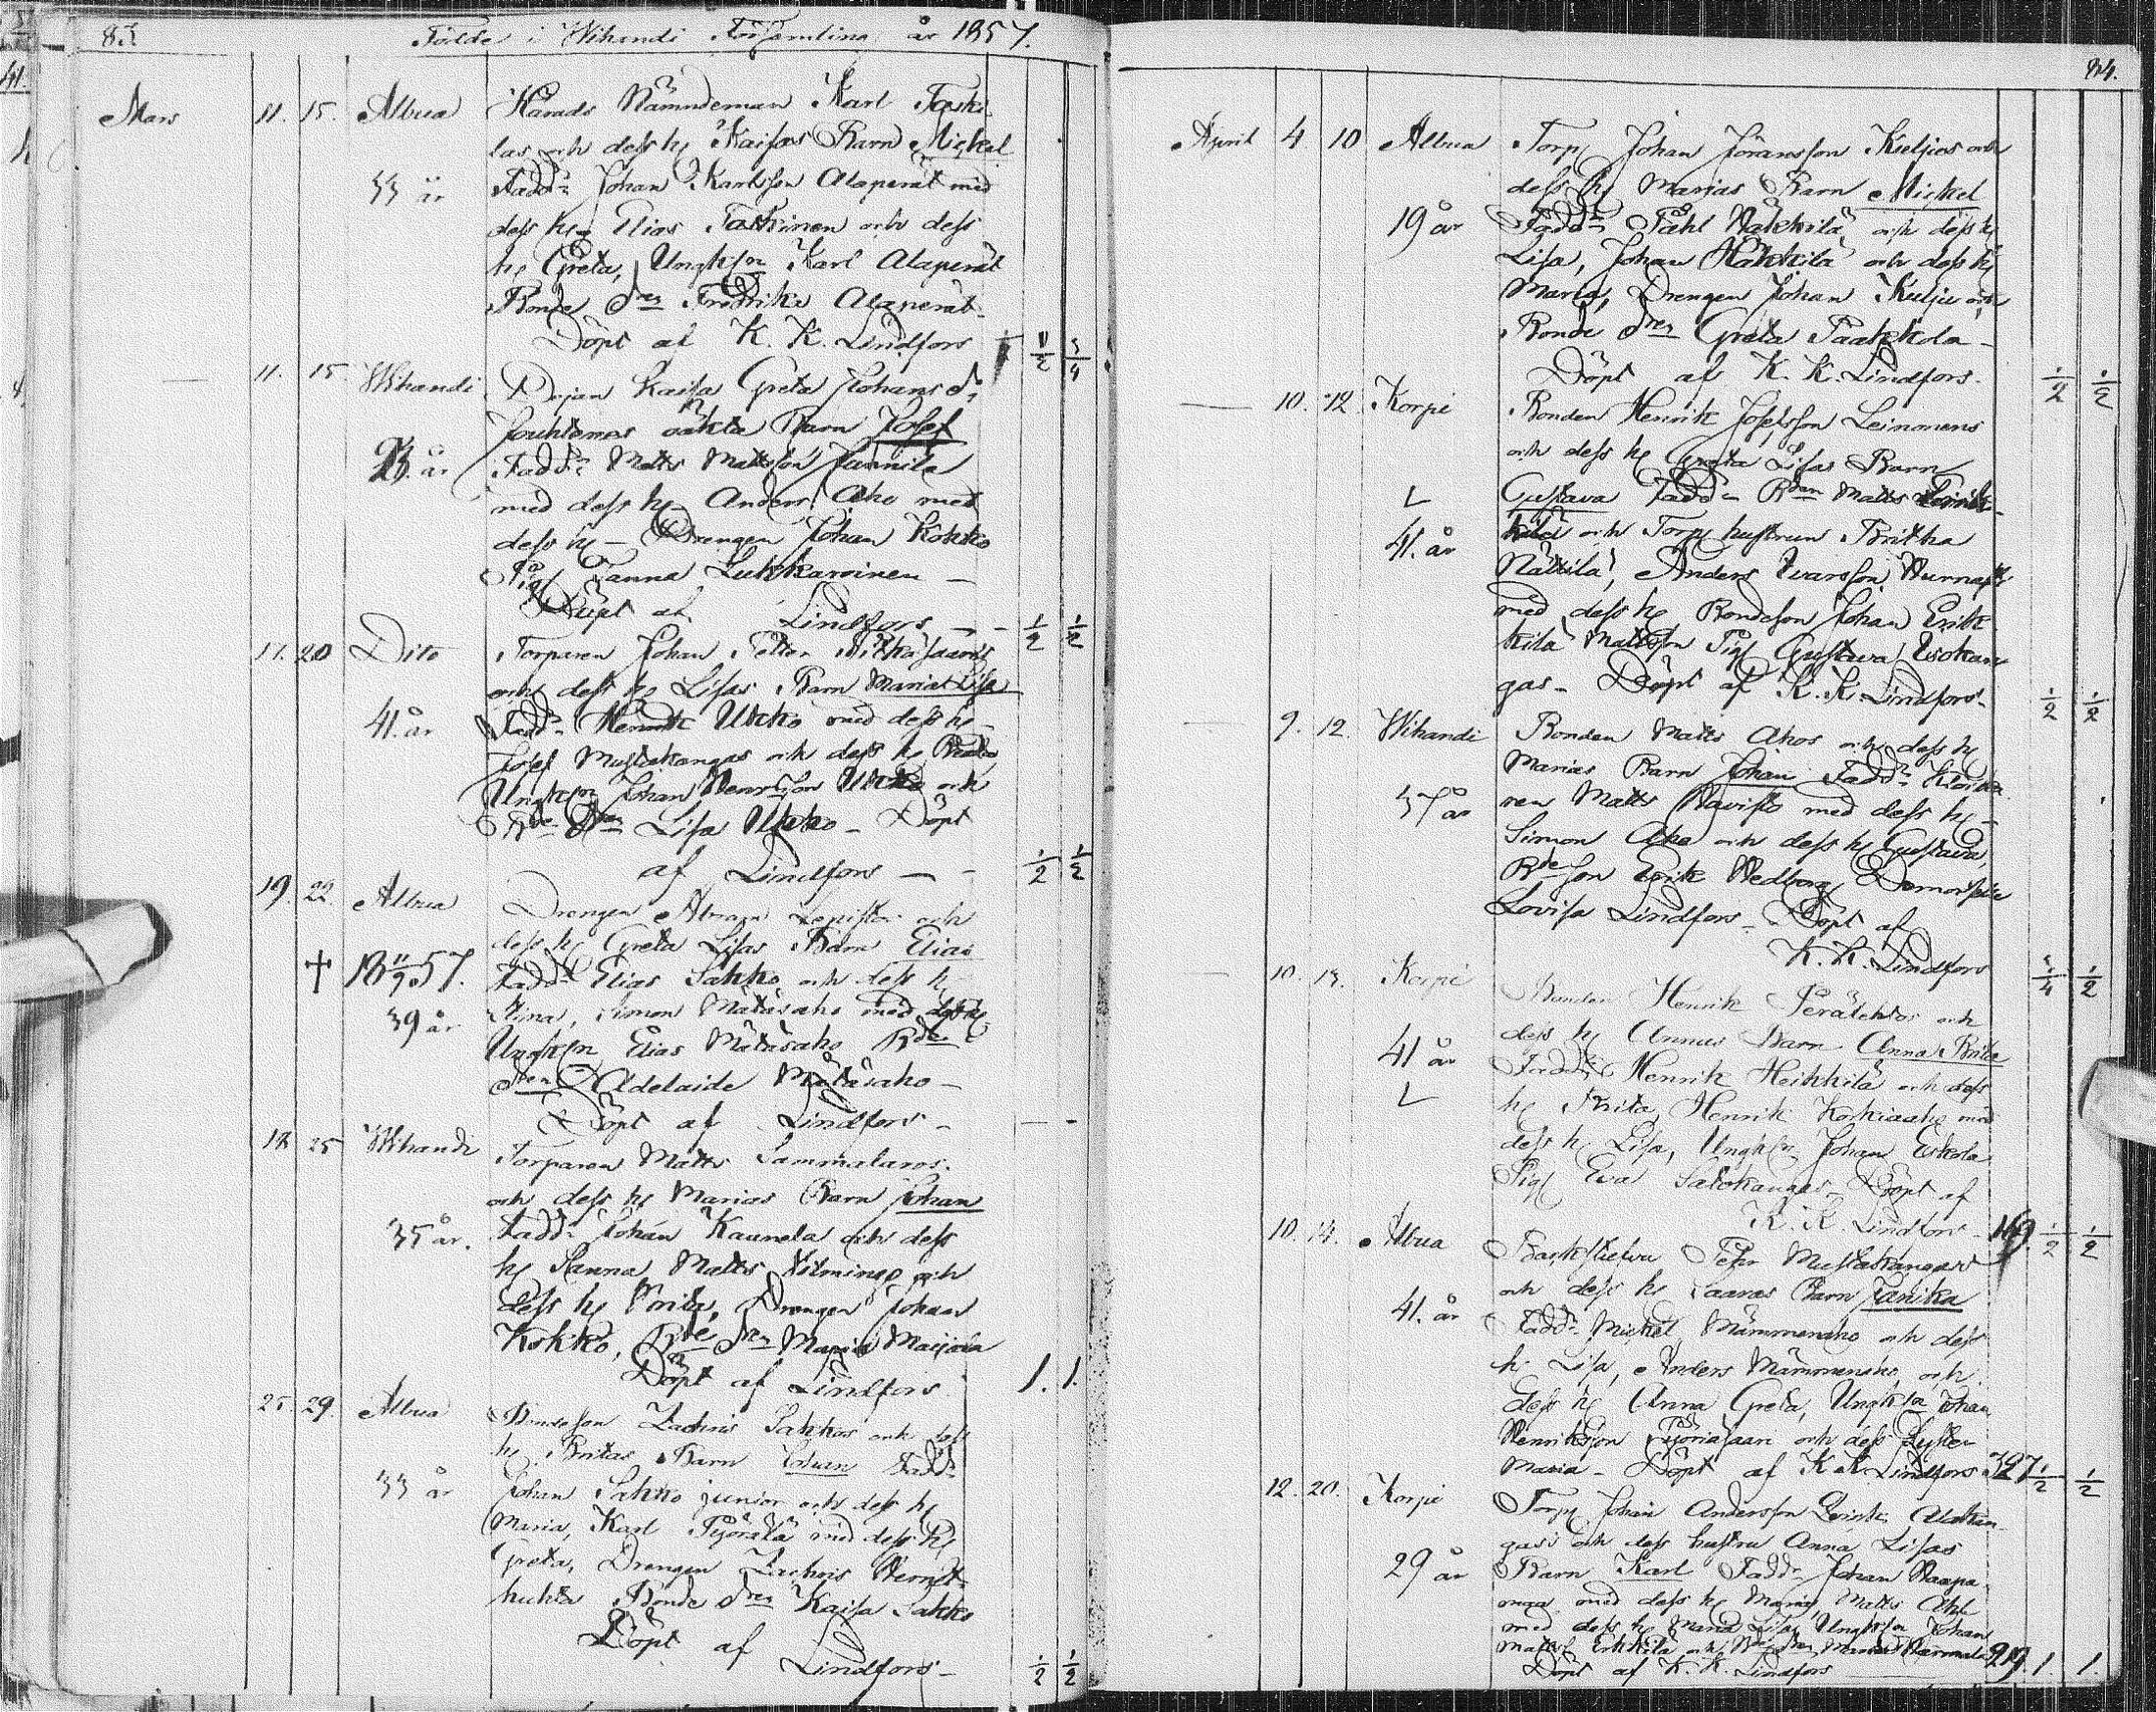 83
Födde i Wihandi Församling år 1857.
Mars 11. 15. Albua Härads Nämndeman Karl Taski-
las och dess h. Kaisas Barn Mickel
33 år Fadd: Johan Karlsson Alaperät med
dess h. Elias Taskinen och dess
h. Greta, Ungk:n Karl Alaperät
Bonde d:ren Fredrika Alaperät
Döpt af K. K. Lindfors
11. 15. Wihandi Pigan Kaisa Greta Johans d:r
oäkta Barn Josef
23 år Fadd: Matts Mattsson Junnila
med dess h. Anders Aho med
dess h. Drengen Johan Kokko
Pig. Sanna Lukkaroinen
Döpt af Lindfors
17. 20 Dito Torparen Johan Petter Pitkäsaaris
och dess h. Lisas Barn Maria Lisa
41. år Fadd: Henrik Ukko med dess h.
Josef Mustakangas och dess h.
Ungk:n Johan Henriksson Ukko och
B:de D:ren Lisa Ukko Döpt
af Lindfors
19. 22. Albua Drengen Abram Lepistös och
dess h. Greta Lisas Barn Elias
† 18 11/9 57. Fadd: Elias Sakko och dess h.
39 år Stina, Simon Mätäsaho med dess h.
Ungk:n Elias Mätäsaho B:de
d:ren Adelaide Mätäsaho
Döpt af Lindfors
18 25 Wihandi Torparen Matts Sammalaros
och dess h. Marias Barn Johan
35 år. Fadd: Johan Kaunela och dess
h. Sanna, Matts Kilmings och
dess h. Brita, Drengen Johan
Kokko, B:de D:ren Maria Maijala
Döpt af Lindfors 1. 1.
25. 29. Albua Bondesson Zachris Sakkos och dess
h. Britas Barn Johan Fadd:
33 år Johan Sakko junior och dess h.
Maria, Karl Pyörälä med dess h.
Greta, Drengen Zachris
huhta Bonde d:ren Kaisa Sakko
Döpt af
Lindfors 1/2 1/2
84.
April 4. 10 Albua Torp. Johan Jöransson Kuljus och
dess h. Marias Barn Mickel
19 år Fadd: Påhl Häkkilä och dess h.
Lisa, Johan Häkkilä och dess h.
Maria, Drengen Johan Kulju och
Bonde d:ren Greta Paakkola
Döpt af K. K. Lindfors. 1/2 1/2
10. 12. Korpi Bonden Henrik Josefsson Leinonens
och dess h. Greta Lisas Barn
Gustava Fadd: B:den Matts
41. år kilä och Torp. hustrun Britha
Nättilä, Anders Ivarsson
med dess h. Bondeson Johan Erik-
kilä Mattsson Pig. Gustava Isokan-
gas Döpt af K. K. Lindfors 1/2 1/2
9. 12. Wihandi Bonden Matts Ahos och dess h.
Marias Barn Johan Fadd:
37 år ren Matts med dess h.
Simon Aho och dess h. Gustava,
B:de son Erik Hedberg Demoiselle
Lovisa Lindfors Döpt af
K. K. Lindfors
10. 13. Korpi Bonden Henrik Perälehtos och
dess h. Annas Barn Anna Brita
41 år Fadd: Henrik Heikkilä och dess
h. Brita, Henrik Korkiaaho med
dess h. Lisa, Ungk:n Johan Eskola
Pig. Eva Salokangas Döpt af
K. K. Lindfors 1/2 1/2
10. 14. Albua Backstufvu Pehr Mustakangas
och dess h. Saaras Barn Janika
41. år Fadd: Mickel Mämmenaho och dess
h. Lisa, Anders Mämmenaho och
dess h. Anna Greta, Ungk:n Johan
Henriksson Pyöriäsaari och dess Syster
Maria Döpt af K. K. Lindfors 1/2 1/2
12. 20. Korpi Torp. Johan Andersson Alakan-
gas's och dess hustru Anna Lisas
29 år Barn Karl Fadd: Johan Haapa-
med dess h. Maria, Matts
med dess h. Maria Lisa, Ungk:n Johan
Matts. Erkkilä och B:de d:ren Maria
Döpt af K. K. Lindfors 1. 1.